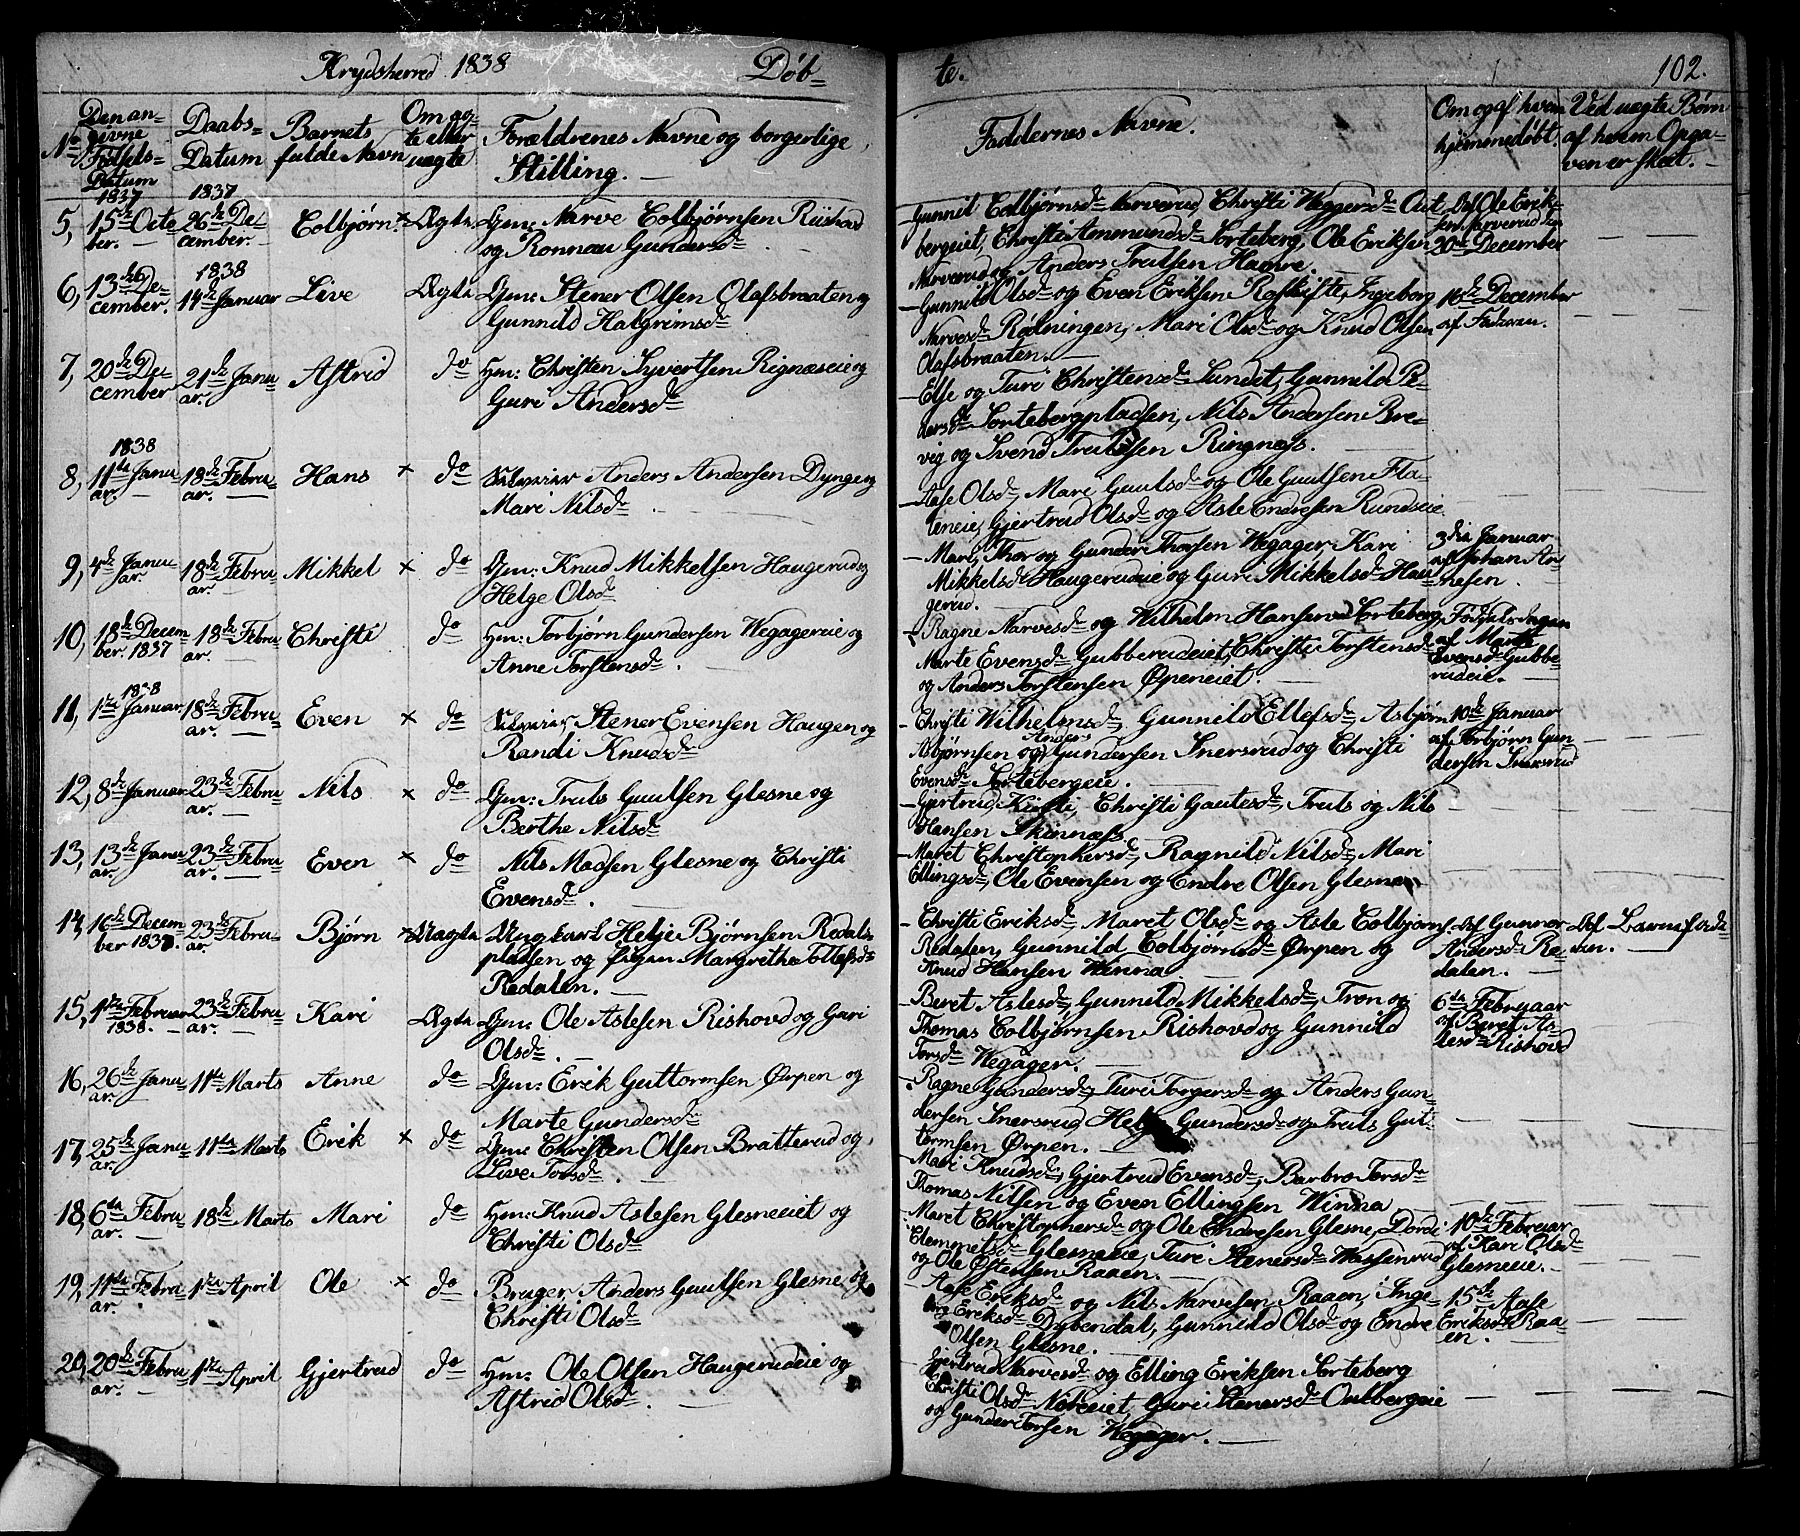 Krydsherred 1838 Døb=
te. 102.
No Den angivne Fødsels-Datum
Daabs-Datum
Barnets fulde Navn
Om ægte eller uægte
Forældrenes Navne og borgerlige Stilling.
Faddernes Navne.
Om og af hvem hjemmedøbt.
Ved uægte Børn af hvem Opgaven er skeet.
1837 1837
5, 15de Octe 26de De= Colbjørn × Ægte Gm: Narve Colbjørnsen
ber. cember. og Ronnau Gundersd
Gunnil Colbjørnsd Narverud Christi Weggersd
bergeiet, Christi Ammundsd Sorteberg, Ole Eriksen
Narverud og Anders Trulsen Hamre.
Def Ole Erik=
sen Narverud
20de December
1838
6, 13de De= 14de Januar Live Ægte Gm: Stener Olsen Olafsbraaten og
cember. Gunnild Halgrimsd
Gunnild Olsd og Even Eriksen Ingeborg
Narvesd Rødningen, Mari Olsd og Knud Olsen
Olafsbraaten.
16de December
af Faderen.
7, 20de De= 21de Janu= Astrid do Hm: Christen Syvertsen Rignæseie og
cember ar. Guri Andersd
Else og Turi Christensd Lundet, Gunnild Pe=
dersd Sortebergpladsen, Nils Andersen Bre=
vig og Svend Trulsen Ringnæss.
1838
8, 11te Janu 18de Febru= Hans × do Anders Andersen Dynge og
ar. ar. Mari Nilsd
Aase Olsd, Mari Guulsd og Ole Guulsen Fla=
teneie, Gjertrud Olsd og Asle Endresen Rundseie
9, 4de Janu 18de Febru= Mikkel × do Gm: Knud Mikkelsen Haugerud og
ar ar. Helge Olsd
Mari, Thor og Gunder Thorsen Wegager, Kari
Mikkelsd Haugerudeie og Guri Mikkelsd Hau=
gerud.
3die Januar
af Johan Ar=
nesen.
10, 18de Decem 18de Febru= Christi do Hm: Torbjørn Gundersen Wegagereie og
ber. 1837 ar. Anne Torstensd.
Ragne Narvesd og Wilhelm Hansen Sorteberg
Marte Evensd Gubberudeiet, Christi Torstensd
og Anders Torstensen Øpeneiet.
af Marte
Evensd Gubbe=
rudeie.
1838
11, 1ste Januar 18de Febru= Even × do Stener Evensen Haugen og
ar. Randi Knudsd
Christi Wilhelmsd, Gunnild Ellefsd, Asbjørn
Asbjørnsen og Anders Gundersen Snersrud og Christi
Evensd Sortebergeie.
10de Januar
af Torbjørn Gun
dersen Snersrud
12, 8de Januar 23de Febru= Nils × do Gm: Truls Guulsen Glesne og
ar. Berthe Nilsd
Gjertrud, Kirsti, Christi Gautesd, Truls og Nils
Hansen Skinnæss
13, 13de Janu 23de Febru= Even × do Nils Madsen Glesne og Christi
ar. ar. Evensd.
Maret Christophersd, Ragnild Nilsd, Mari
Ellingsd, Ole Evensen og Endre Olsen Glesne
14, 16de Decem 23de Febru= Bjørn × Uægte Ungkarl Helje Bjørnsen Redals
ber 1837. ar. pladsen og Pigen Margrethe Tollefsd
Redalen.
Christi Eriksd, Maret Olsd og Asle Colbjørns.
Redalen, Gunnild Colbjørnsd Ørpen og
Knud Hansen Winna
Def Gunnor
Andersd Re=
dalen.
Def
15, 1ste Februar 23de Febru= Kari Ægte Gm: Ole Aslesen Rishovd og Guri
1838. ar. Olsd.
Beret Aslesd, Gunnild Mikkelsd, Tron og
Thomas Colbjørnsen Rishovd og Gunnild
Torsd Wegager.
6te Februaar
af Beret As=
lesd Rishovd
16, 26de Janu= 11te Marts Anne do Gm: Erik Guttormsen Ørpen og
ar. Marte Gundersd
Ragne Gundersd, Turi Torgersd og Anders Gun=
dersen Snersrud Gundersd og Truls Gut=
tormsen Ørpen.
17, 25de Janu= 11te Marts Erik × do Gm: Christen Olsen Bratterud og
ar. Live Torsd.
Mari Knudsd, Gjertrud Evensd, Barbro Torsd
Thomas Nilsen og Even Ellingsen Winna
18, 6te Febru= 18de Marts Mari do Hm: Knud Aslesen Glesneeiet og
ar. Christi Olsd
Maret Christophersd og Ole Endresen Glesne, Dordi
Clemmetsd Glesneeie, Turi Stenersd
og Ole Østensen Raaen.
10de Februar
af Kari Olsd
Glesneeie.
19, 11te Febru= 1ste April Ole × do Bruger Anders Guulsen Glesne og
ar. Christi Olsd
Aase Eriksd og Nils Narvesen Raaen, Inge=
borg Eriksd Dybendal, Gunnild Olsd og Endre
Olsen Glesne.
15de Aase
Eriksd Raa=
en.
20, 20de Febru= 1ste April Gjertrud do Hm: Ole Olsen Haugerudeie og
ar. Astrid Olsd.
Gjertrud Narvesd og Elling Eriksen Sorteberg
Christi Olsd Guri Stenersd
og Gunder Torsen Wegager.